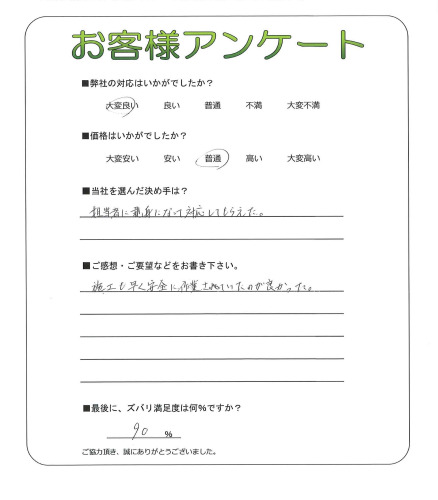 お客様アンケート
■弊社の対応はいかがでしたか？
大変良い 良い 普通 不満 大変不満
■価格はいかがでしたか？
大変安い 安い 普通 高い 大変高い
■当社を選んだ決め手は？
担当者に親身になって対応してもらえた。
■ご感想・ご要望などをお書き下さい。
施工も早く安全に作業されていたのが良かった。
■最後に、ズバリ満足度は何%ですか？
90 %
ご協力頂き、誠にありがとうございました。